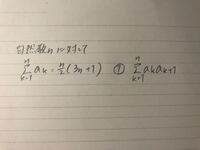 自然数nに対して
$\sum_{k=1}^{n} a_k = \frac{n}{2}(3n+1)$ ① $\sum_{k=1}^{n} a_k a_{k+1}$